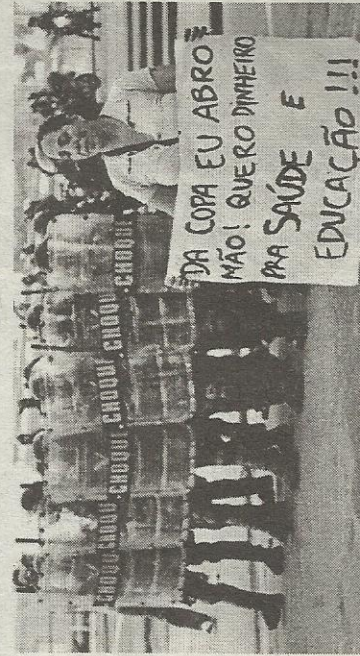 CHOQU CHOQU CHOQUI CHOQUI CHOQUI CHOQUI
DA COPA EU ABRO
MÃO! QUERO DINHEIRO
PRA SAÚDE E
EDUCAÇÃO!!!